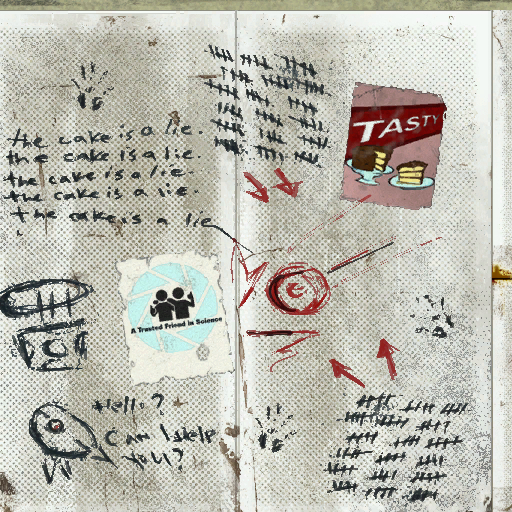 the cake is a lie.
the cake is a lie.
the cake is a lie.
the cake is a lie.
the cake is a lie
TASTY
A Trusted Friend in Science
Hello?
Can I help
you?